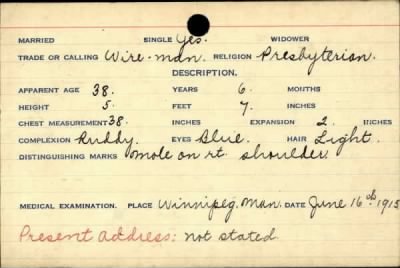 MARRIED SINGLE Yes. WIDOWER
TRADE OR CALLING Wire-man. RELIGION Presbyterian.
DESCRIPTION.
APPARENT AGE 38. YEARS 6 MONTHS
HEIGHT 5. FEET 7 INCHES
CHEST MEASUREMENT 38 INCHES EXPANSION 2 INCHES
COMPLEXION Ruddy. EYES Blue. HAIR Light.
DISTINGUISHING MARKS mole on rt shoulder.
MEDICAL EXAMINATION. PLACE Winnipeg, Man. DATE June 16th 1915
Present Address: not stated